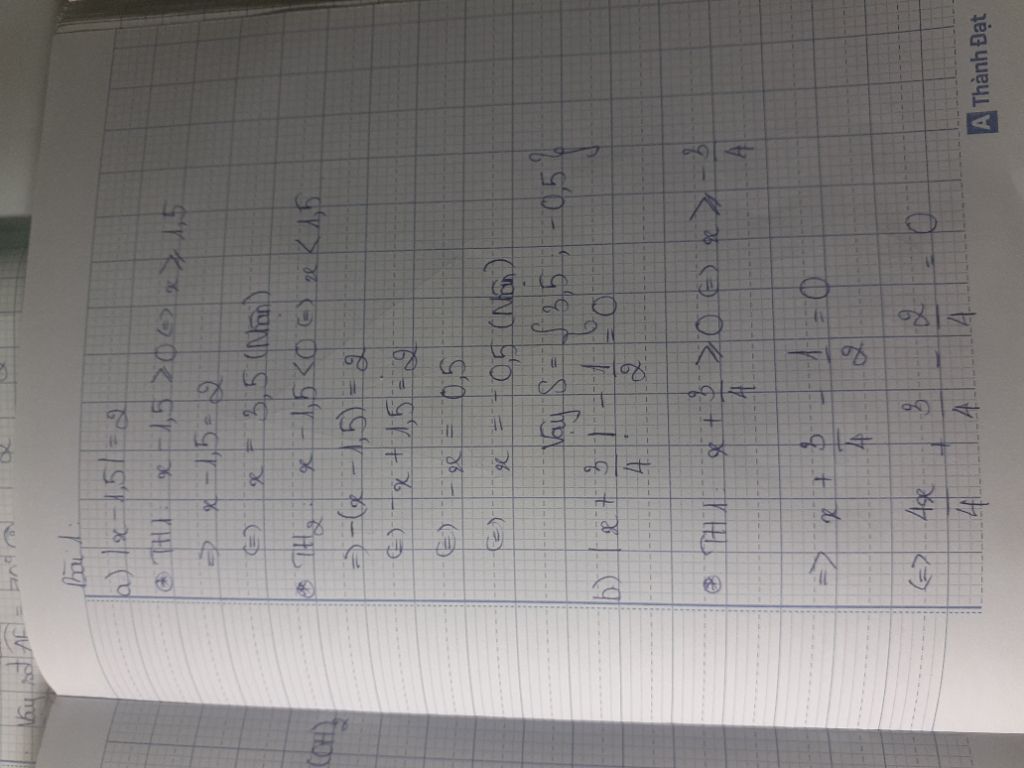 Bài 1:
a) |x - 1,5| = 2
⊛ TH1: x - 1,5 ⩾ 0 (=) x ⩾ 1,5
=> x - 1,5 = 2
(=) x = 3,5 (Nhận)
⊛ TH2: x - 1,5 < 0 (=) x < 1,5
=> -(x - 1,5) = 2
(=) - x + 1,5 = 2
(=) - x = 0,5
(=) x = - 0,5 (Nhận)
Vậy S = { 3,5 ; - 0,5 }
b) |x + 3/4| - 1/2 = 0
⊛ TH1: x + 3/4 ⩾ 0 (=) x ⩾ - 3/4
=> x + 3/4 - 1/2 = 0
(=> 4x/4 + 3/4 - 2/4 = 0
A Thành Đạt
(CH)2